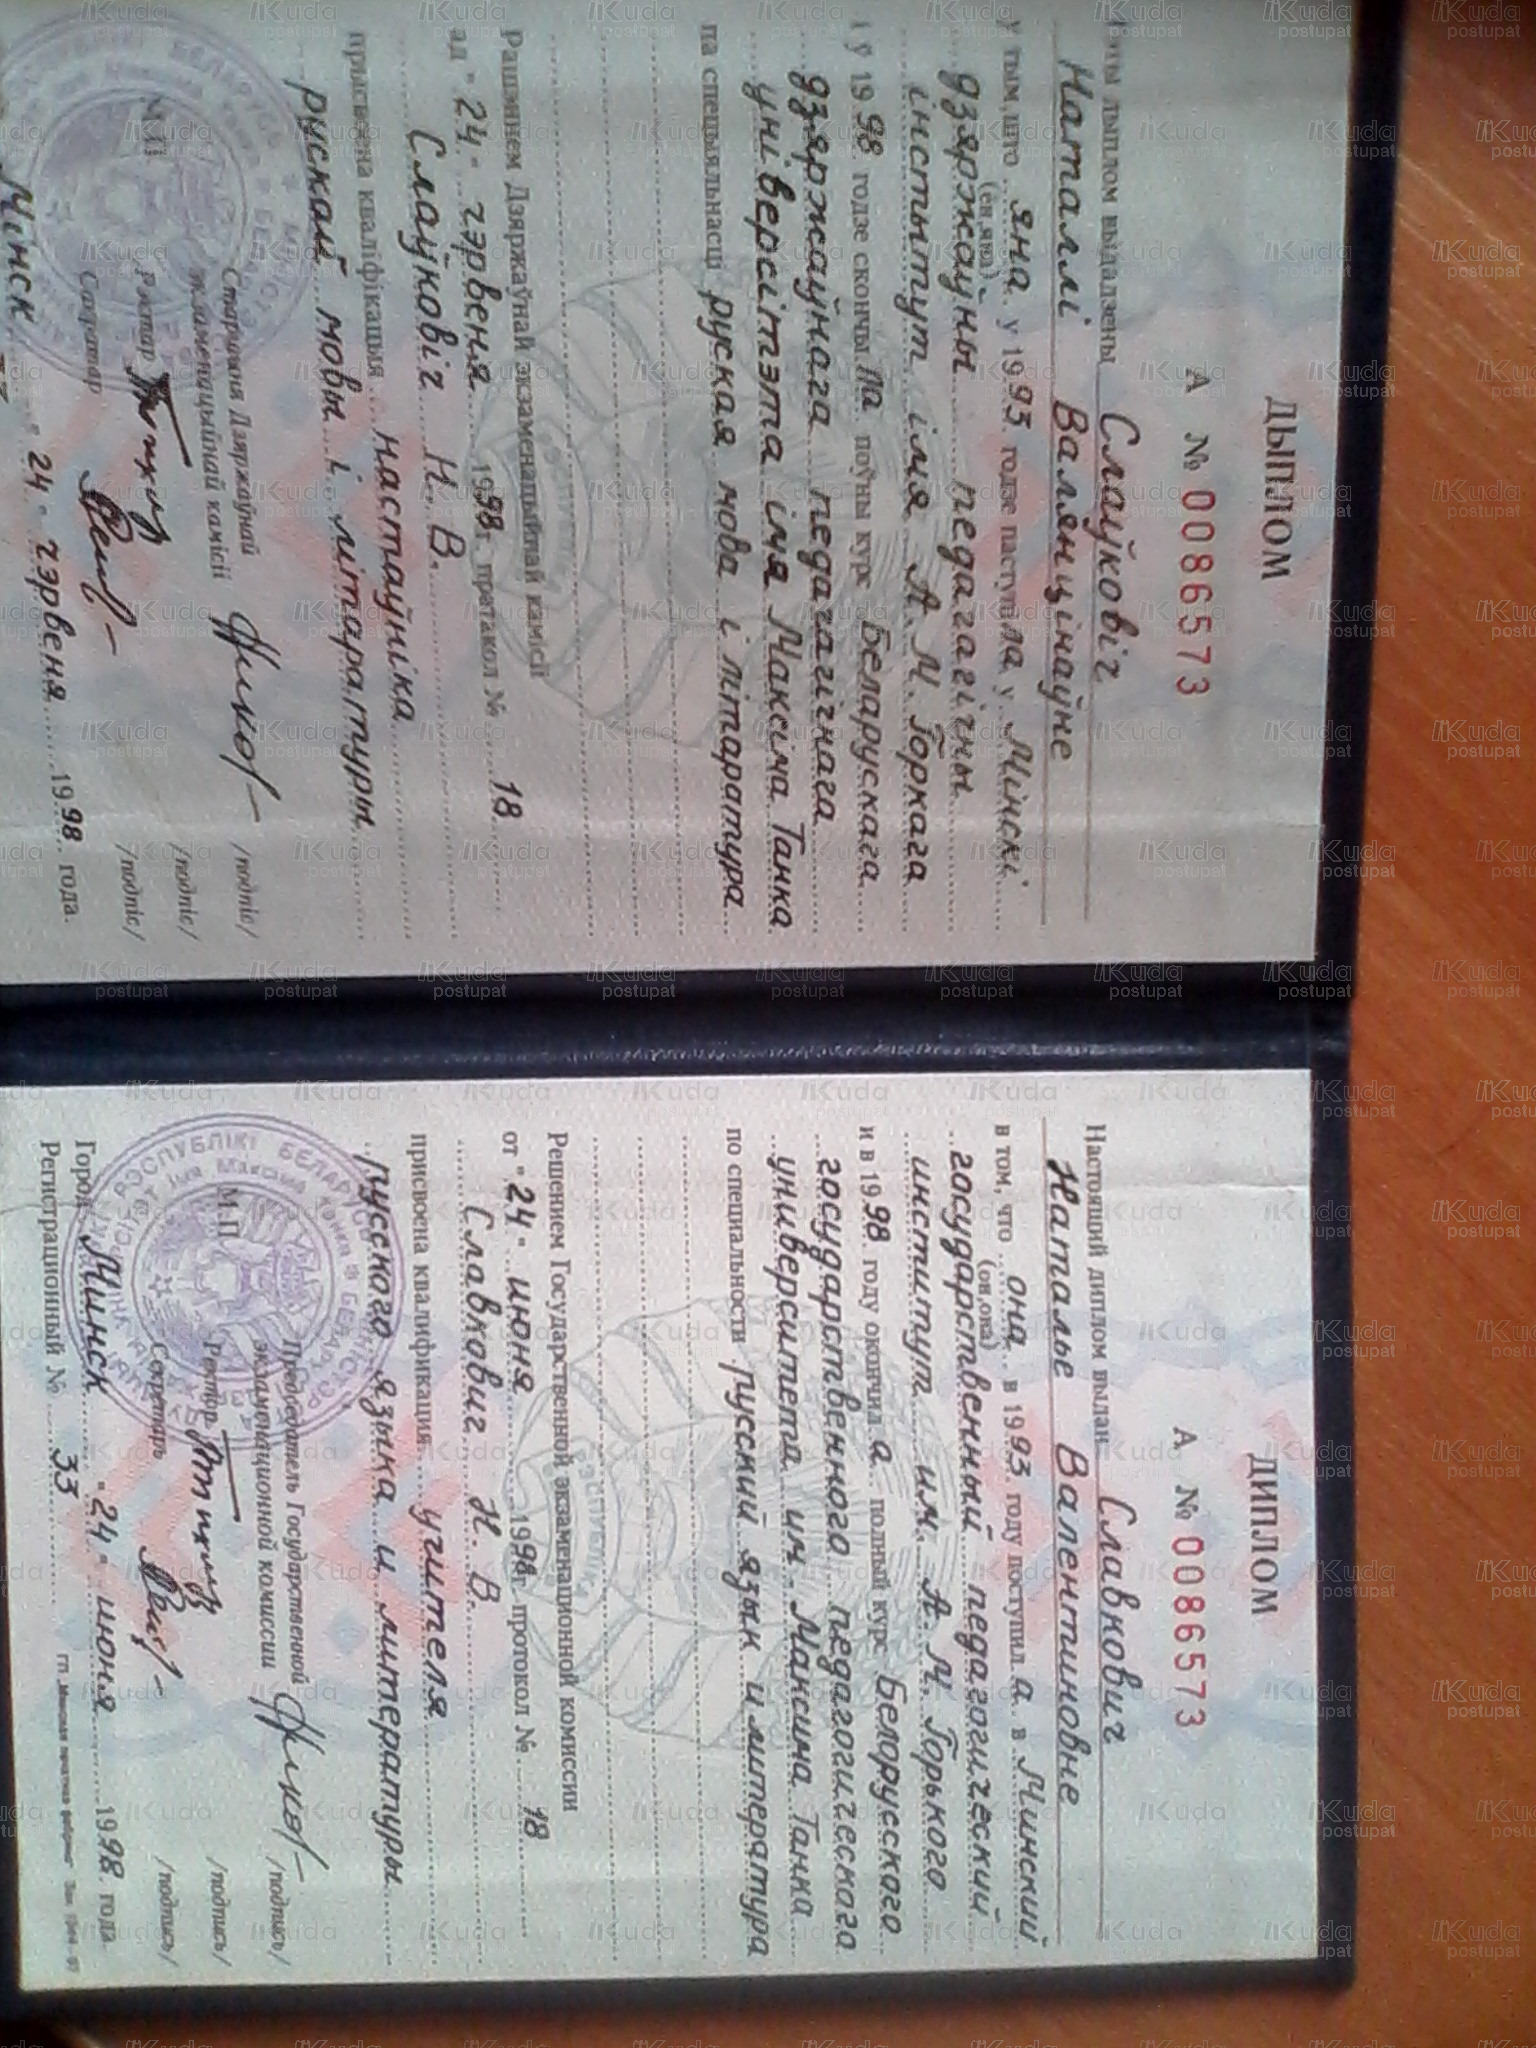 ДЫПЛОМ
А № 0086573
Гэты дыплом выдадзены Слаўковіч
Наталлі Валянцінаўне
у тым, што яна у 1993 годзе паступіла у Мінскі
(ён, яна)
дзяржаўны педагагічны
інстытут імя А. М. Горкага
і ў 1998 годзе скончыла поўны курс Беларускага
дзяржаўнага педагагічнага
універсітэта імя Максіма Танка
па спецыяльнасці руская мова і літаратура
Рашэннем Дзяржаўнай экзаменацыйнай камісіі
ад "24" чэрвеня 1998 г. пратакол № 18
Слаўковіч Н. В.
прысвоена кваліфікацыя настаўніка
рускай мовы і літаратуры
Старшыня Дзяржаўнай
экзаменацыйнай камісіі /подпіс/
М.П. Рэктар /подпіс/
Сакратар /подпіс/
Мінск "24" чэрвеня 1998 года.
ДИПЛОМ
А № 0086573
Настоящий диплом выдан Славкович
Наталье Валентиновне
в том, что она в 1993 году поступила в Минский
(он, она)
государственный педагогический
институт им. А. М. Горького
и в 1998 году окончила полный курс Белорусского
государственного педагогического
университета им. Максима Танка
по специальности русский язык и литература
Решением Государственной экзаменационной комиссии
от "24" июня 1998 г. протокол № 18
Славкович Н. В.
присвоена квалификация учителя
русского языка и литературы
Председатель Государственной
экзаменационной комиссии /подпись/
М.П. Ректор /подпись/
Секретарь /подпись/
Город Минск "24" июня 1998 года.
Регистрационный № 33